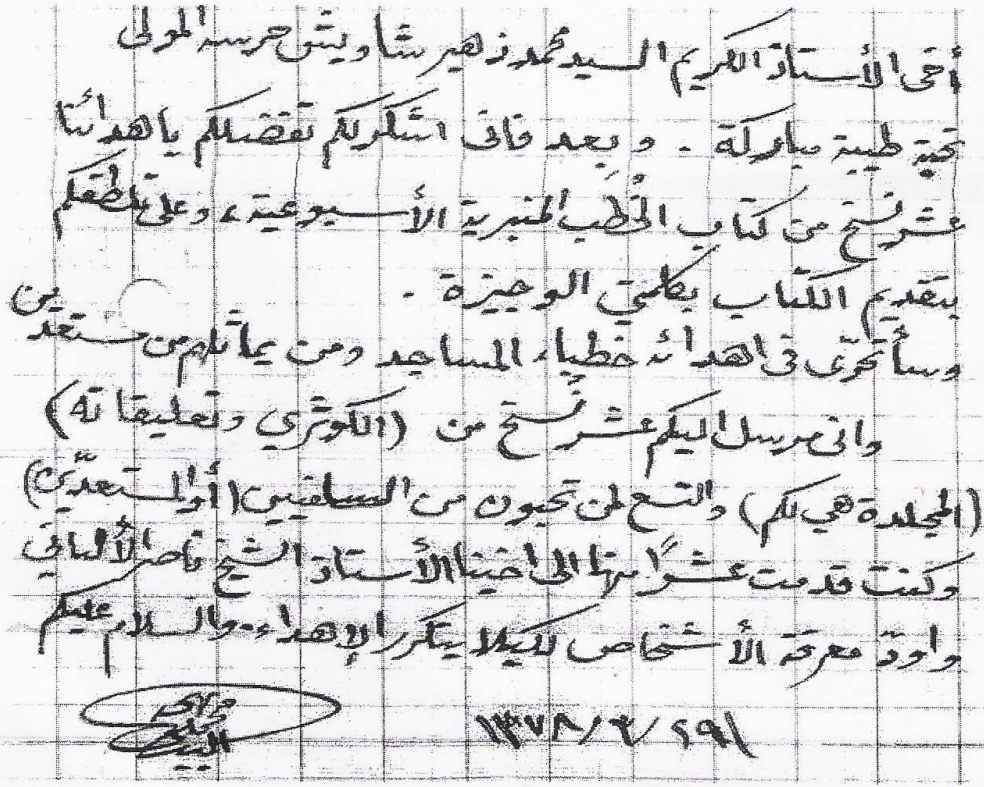 أخي الأستاذ الكريم السيد محمد زهير شاويش حرسه المولى
تحية طيبة مباركة . وبعد فاني اشكر لكم تفضلكم باهدائنا
عشر نسخ من كتاب الخطب المنبرية الأسبوعية ، وعلى تلطفكم
بتقديم الكتاب بكلمتي الوجيزة .
وسأتحرّى في اهدائه خطباء المساجد ومن يماثلهم من مستعدين
واني مرسل اليكم عشر نُسخ من (الكوثري وتعليقاته)
(المجلدة هي لكم) والتسع لمن تحبون من السلفيين (أو المستعدّين)
وكنت قدمت عشرًا منها الى اخينا الأستاذ الشيخ ناصر الألباني
واودّ معرفة الأشخاص لكيلا يتكرر الإهداء. والسلام عليكم
محمد بهجة البيطار